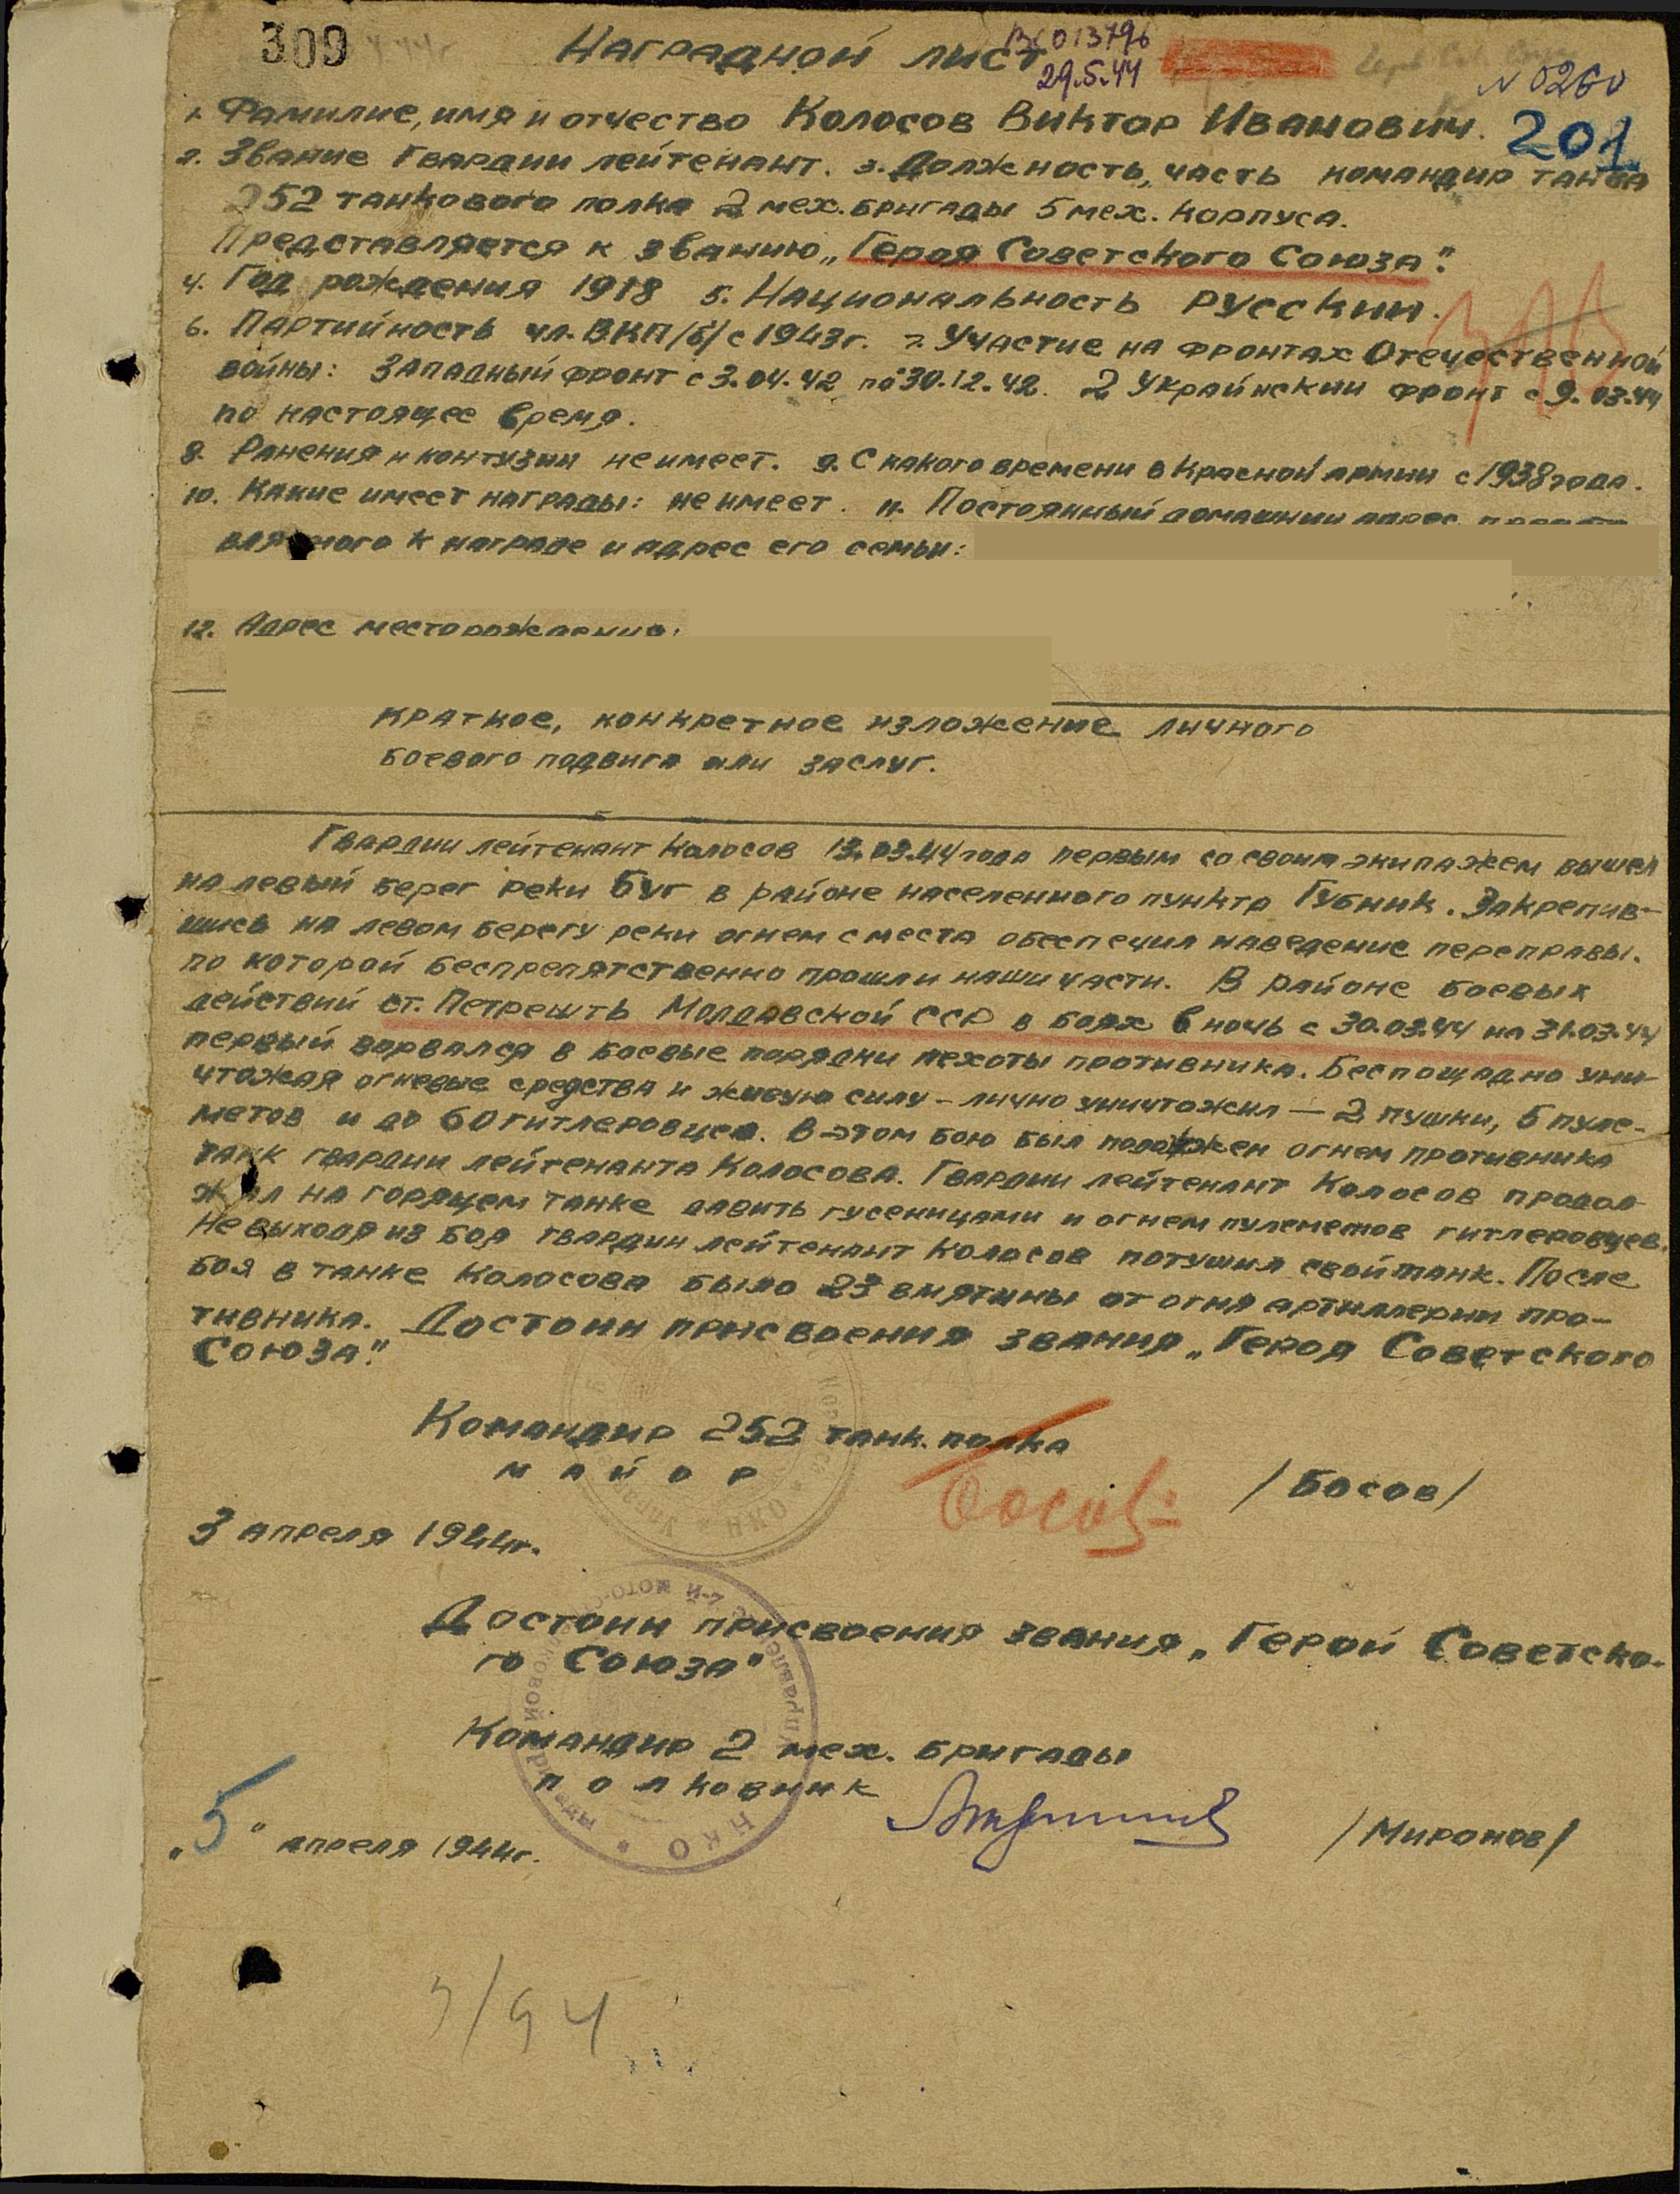 309
Наградной лист
013796
29.5.44
N 0260
201
1. Фамилие, имя и отчество Колосов Виктор Иванович.
2. Звание Гвардии лейтенант. 3. Должность, часть командир танка
252 танкового полка 2 мех. бригады 5 мех. корпуса.
Представляется к званию „Героя Советского Союза".
4. Год рождения 1918 5. Национальность русский.
6. Партийность чл. ВКП/б/ с 1943 г. 7. Участие на фронтах Отечественной
войны: Западный фронт с 3.04.42 по 30.12.42. 2 Украйнский фронт с 9.03.44
по настоящее время.
8. Ранения и контузии не имеет. 9. С какого времени в Красной армии с 1938 года.
10. Какие имеет награды: не имеет. 11. Постоянный домашний адрес предста
вляемого к награде и адрес его семьи:
12. Адрес месторождения:
Краткое, конкретное изложение личного
боевого подвига или заслуг.
Гвардии лейтенант Колосов 13.03.44 года первым со своим экипажем вышел
на левый берег реки Буг в районе населенного пункта Губник. Закрепив-
шись на левом берегу реки огнем с места обеспечил наведение переправы.
по которой беспрепятственно прошли наши части. В районе боевых
действий ст. Петрешть Молдавской ССР в боях в ночь с 30.03.44 на 31.03.44
первый ворвался в боевые порядки пехоты противника. Беспощадно уни-
чтожая огневые средства и живую силу – лично уничтожил – 2 пушки, 5 пуле-
метов и до 60 гитлеровцев. В этом бою был подожжен огнем противника
танк гвардии лейтенанта Колосова. Гвардии лейтенант Колосов продол-
жал на горящем танке давить гусеницами и огнем пулеметов гитлеровцев.
Не выходя из боя гвардии лейтенант Колосов потушил свой танк. После
боя в танке Колосова было 23 вмятины от огня артиллерии про-
тивника. Достоин присвоения звания „Героя Советского
Союза".
Командир 252 танк. полка
майор Босов /Босов/
3 апреля 1944г.
Достоин присвоения звания „Герой Советско-
го Союза"
Командир 2 мех. бригады
полковник /Миронов/
„5" апреля 1944г.
НКО